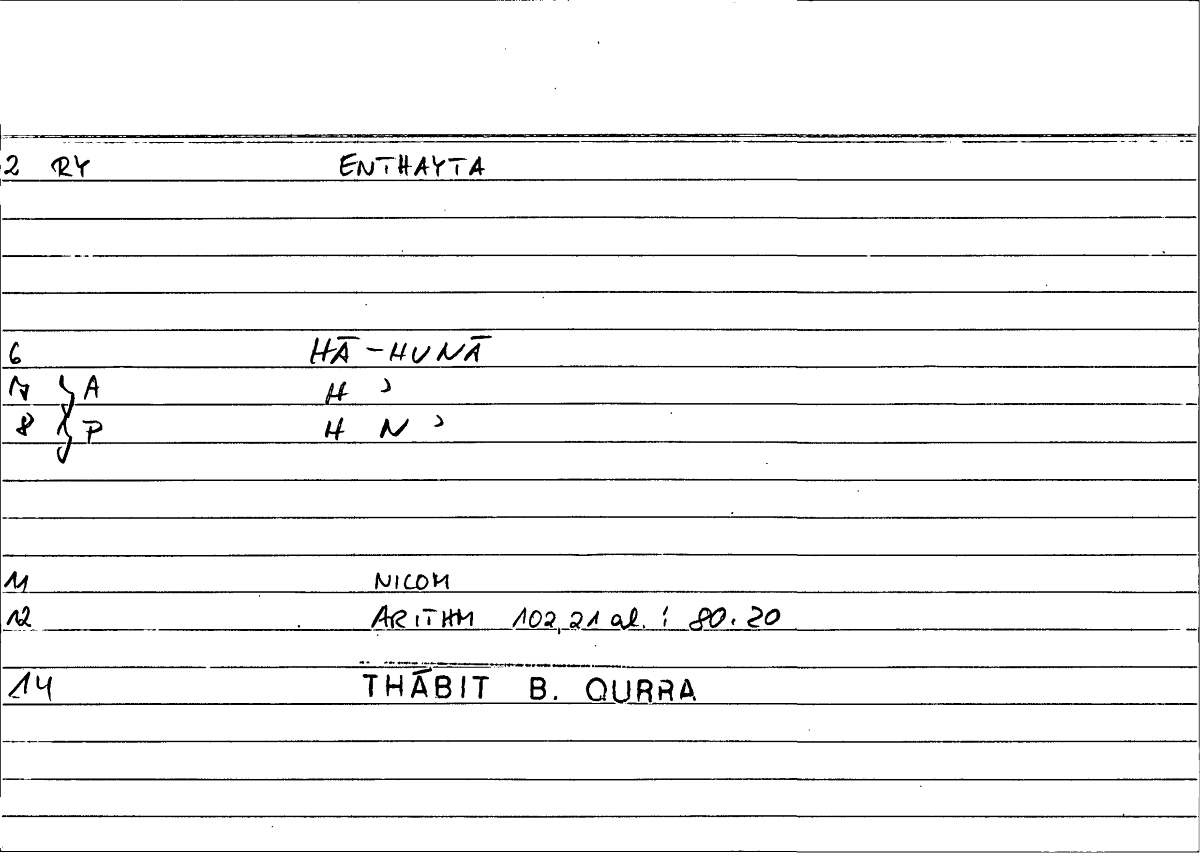 2 RY ENTHAYTA
6 HĀ-HUNĀ
7 A H ʾ
8 P H N ʾ
11 NICOM
12 ARITHM 102,21 al. : 80.20
14 THĀBIT B. QURRA